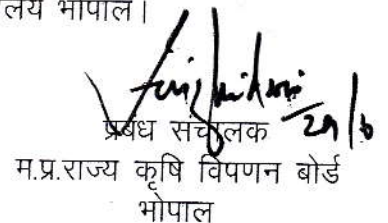 लय भोपाल।
29/6
प्रबंध संचालक
म.प्र.राज्य कृषि विपणन बोर्ड
भोपाल